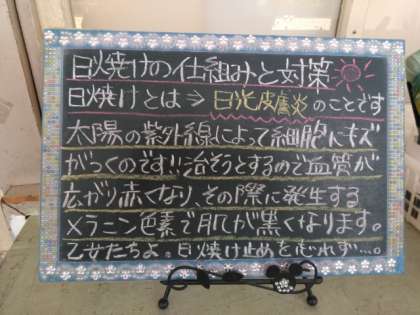 日焼けの仕組みと対策
日焼けとは⇒日光皮膚炎のことです
太陽の紫外線によって細胞にキズ
がつくのです!!治そうとするので血管が
広がり赤くなり、その際に発生する
メラニン色素で肌が黒くなります。
乙女たちよ。日焼け止めを忘れず…。